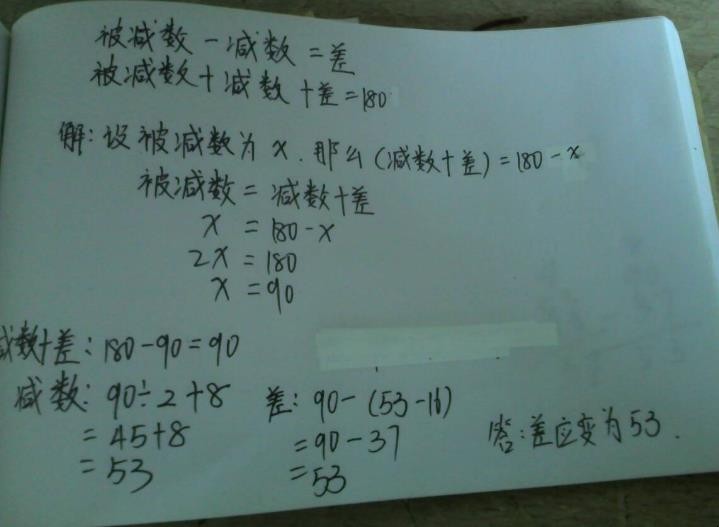 被减数－减数＝差
被减数＋减数＋差＝180
解：设被减数为x．那么（减数＋差）＝180－x
被减数＝减数＋差
x＝180－x
2x＝180
x＝90
减数＋差：180－90＝90
减数：90÷2＋8
＝45＋8
＝53
差：90－（53－16）
＝90－37
＝53
答：差应变为53．